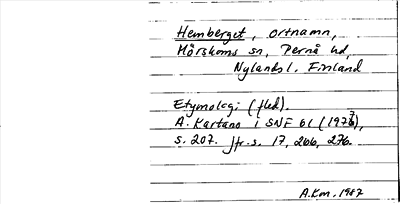 Hemberget, ortnamn,
Mörskoms sn, Pernå hd,
Nylands l. Finland
Etymologi (fled).
A. Kartano i SNF 61 (1973),
s. 207. Jfr s. 17, 266, 276.
A.Km. 1987